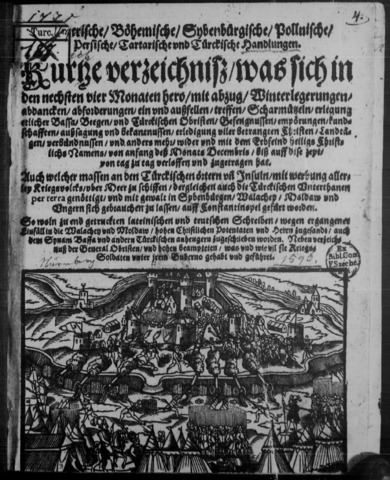 1471
4.
Turc.
Hungerische/ Böhemische/ Sybenbürgische/ Pollnische/
Persische/ Tartarische vnd Türckische Handlungen.
Kurtze verzeichniß/ was sich in
den nechsten vier Monaten hero/ mit abzug/ Winterlegerungen/
abdancken/ abforderungen/ ein vnd außfellen/ treffen/ Scharmützeln/ erlegung
etlicher Bassa/ Beegen/ vnd Türckischen Obristen/ Gefengnussen/ empörungen/ kund
schafften/ außsagung vnd bekantnussen/ erledigung viler betrangten Christen/ Landtä
gen/ verbündnussen/ vnd anders mehr/ wider vnd mit dem Erbfeind heiligs Christ
lichs Namens/ von anfang deß Monats Decembris/ biß auff dise zeyt/
von tag zu tag verloffen vnd zugetragen hat.
Auch welcher massen an den Türckischen örtern vñ Insuln/ mit werbung aller
ley Kriegsvolcks/ vber Meer zu schiffen/ dergleichen auch die Türckischen Vnterthanen
per terra genötigt/ vnd mit gewalt in Sybenbürgen/ Walachey/ Moldaw vnd
Vngern sich gebrauchen zu lassen/ auff Constantinopel gefürt worden.
So wol in zu end getruckten lateinischen vnd teutschen Schreiben/ wegen ergangenes
Einfall in die Walachey vnd Moldaw/ hohen Christlichen Potentaten vnd Herrn zugesandt/ auch
dem Synan Bassa vnd andern Türckischen anhengern zugeschrieben worden. Neben verzeich
nuß der General Obristen/ vnd hohen beampteten/ was vnd wie vil sie Kriegs
Soldaten vnter jrem Guberno gehabt vnd geführt.
Nürnberg
1595.
Ex
Bibl. Com.
F. Széché.